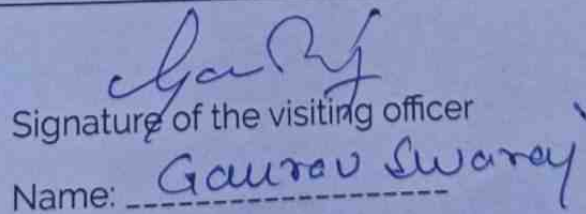 Signature of the visiting officer
Name: Gaurav Swaraj